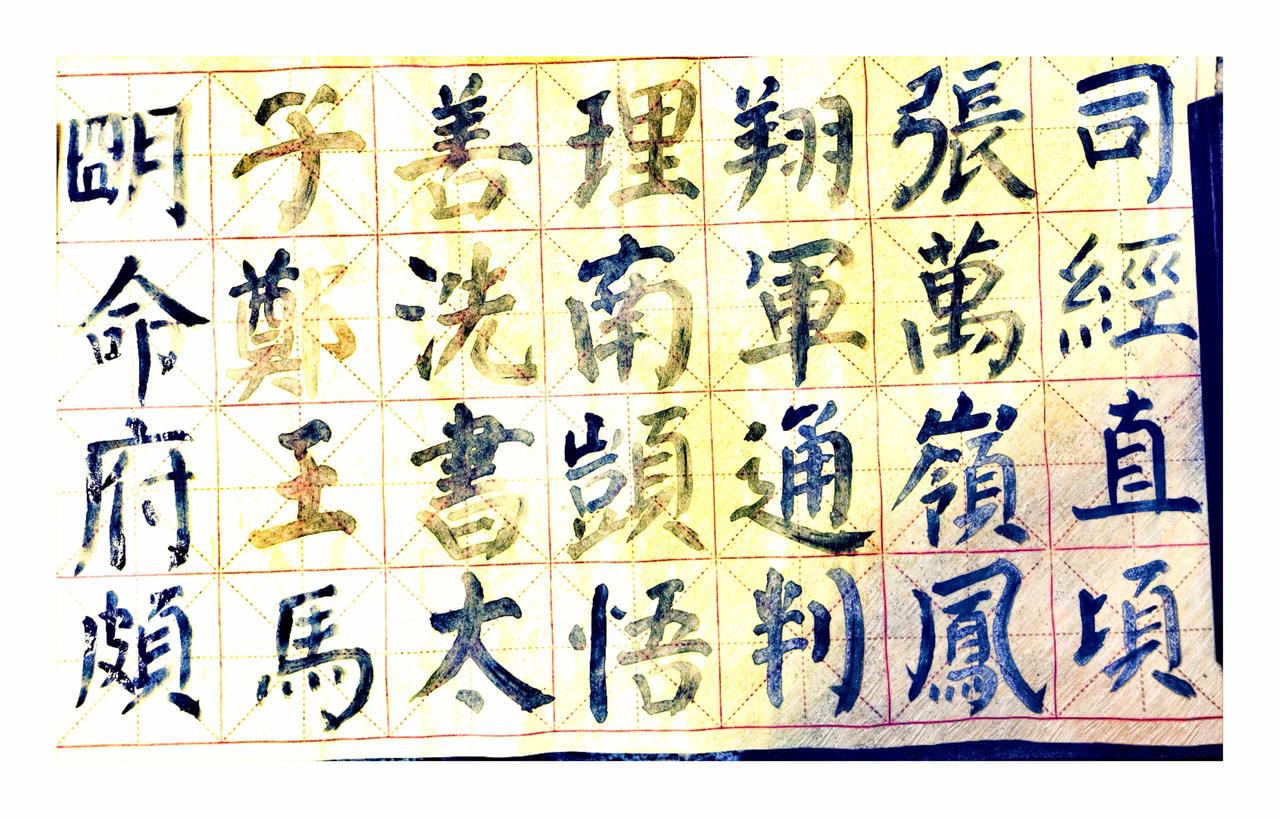 司經直頃
張萬嶺鳳
翔軍通判
理南顗悟
善洗書太
子鄭王馬
朙命府頗